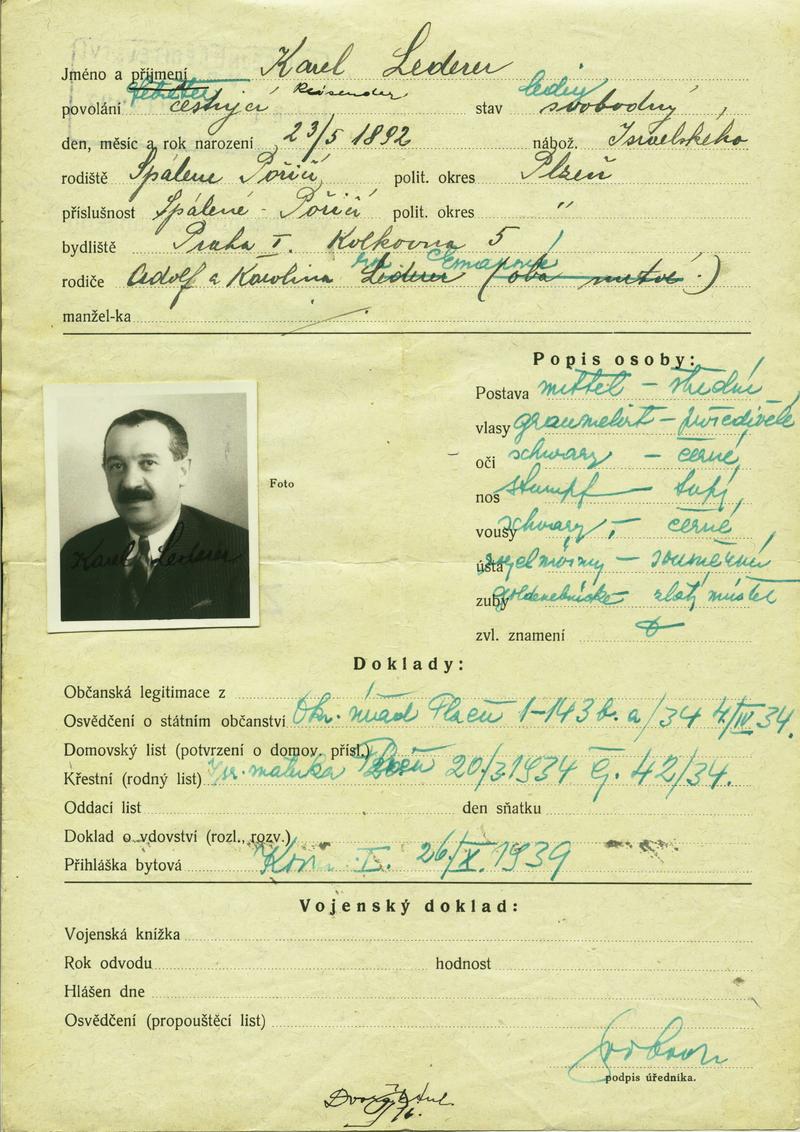 Jméno a příjmení Karel Lederer
povolání cestující Reisender stav ledig svobodný,
den, měsíc a rok narození 23/5 1892 nábož. Israelského
rodiště Spálené Poříčí, polit. okres Plzeň
příslušnost Spálené - Poříčí polit. okres "
bydliště Praha I. Kolkovna 5
rodiče Adolf a Karolina Lederer (oba mrtvé.)
manžel-ka
Popis osoby:
Postava mittel - střední,
vlasy graumeliert - prošedivělé
oči schwarz - černé,
Foto
nos stumpf - tupý,
Karel Lederer
vousy schwarz, - černé,
ústa regelmässig - souměrná
zuby zlatý můstek
zvl. znamení
Doklady:
Občanská legitimace z
Osvědčení o státním občanství Okr. úřad Plzeň 1-143 b. a/34 4/IV 34.
Domovský list (potvrzení o domov. přísl.)
Křestní (rodný list) Isr. matrika 20/3 1934 č. 42/34.
Oddací list den sňatku
Doklad o vdovství (rozl., rozv.)
Přihláška bytová Kom. I. 26/X. 1939
Vojenský doklad:
Vojenská knížka
Rok odvodu hodnost
Hlášen dne
Osvědčení (propouštěcí list)
podpis úředníka.